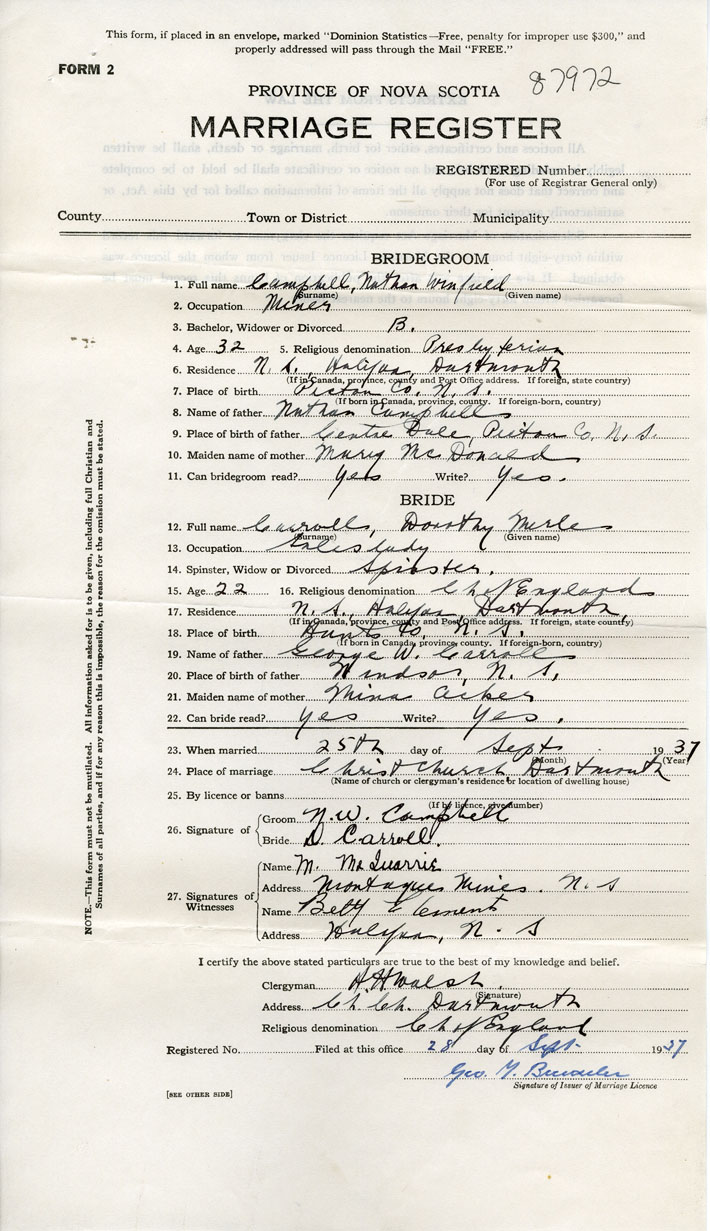 This form, if placed in an envelope, marked "Dominion Statistics—Free, penalty for improper use $300," and
properly addressed will pass through the Mail "FREE."
FORM 2
87972
PROVINCE OF NOVA SCOTIA
MARRIAGE REGISTER
REGISTERED Number
(For use of Registrar General only)
County Town or District Municipality
BRIDEGROOM
1. Full name Campbell, Nathan Winfield
(Surname) (Given name)
2. Occupation Miner
3. Bachelor, Widower or Divorced B.
4. Age 32 5. Religious denomination Presbyterian
6. Residence N. S., Halifax, Dartmouth
(If in Canada, province, county and Post Office address. If foreign, state country)
7. Place of birth Pictou Co. N. S.
(If born in Canada, province, county. If foreign-born, country)
8. Name of father Nathan Campbell
9. Place of birth of father Centre Dale, Pictou Co. N. S.
10. Maiden name of mother Mary McDonald
11. Can bridegroom read? Yes Write? Yes.
BRIDE
12. Full name Carroll, Dorothy Merle
(Surname) (Given name)
13. Occupation Saleslady
14. Spinster, Widow or Divorced Spinster.
15. Age 22 16. Religious denomination Ch of England
17. Residence N. S., Halifax, Dartmouth,
(If in Canada, province, county and Post Office address. If foreign, state country)
18. Place of birth Hants Co. N. S.
(If born in Canada, province, county. If foreign-born, country)
19. Name of father George W. Carroll
20. Place of birth of father Windsor, N. S.
21. Maiden name of mother Mina Acker
22. Can bride read? Yes Write? Yes.
23. When married 25th day of Sept 1937
(Month) (Year)
24. Place of marriage Christ Church Dartmouth
(Name of church or clergyman's residence or location of dwelling house)
25. By licence or banns
(If by licence, give number)
26. Signature of Groom N. W. Campbell
Bride D. Carroll.
27. Signatures of Witnesses Name M. McQuarrie
Address Montague Mines. N. S
Name Betty Clements
Address Halifax, N. S
I certify the above stated particulars are true to the best of my knowledge and belief.
Clergyman
(Signature)
Address Ch. Ch. Dartmouth
Religious denomination Ch of England
Registered No. Filed at this office 28 day of Sept. 1937
Geo.
Signature of Issuer of Marriage Licence
[SEE OTHER SIDE]
NOTE.—This form must not be mutilated. All information asked for is to be given, including full Christian and
Surnames of all parties, and if for any reason this is impossible, the reason for the omission must be stated.